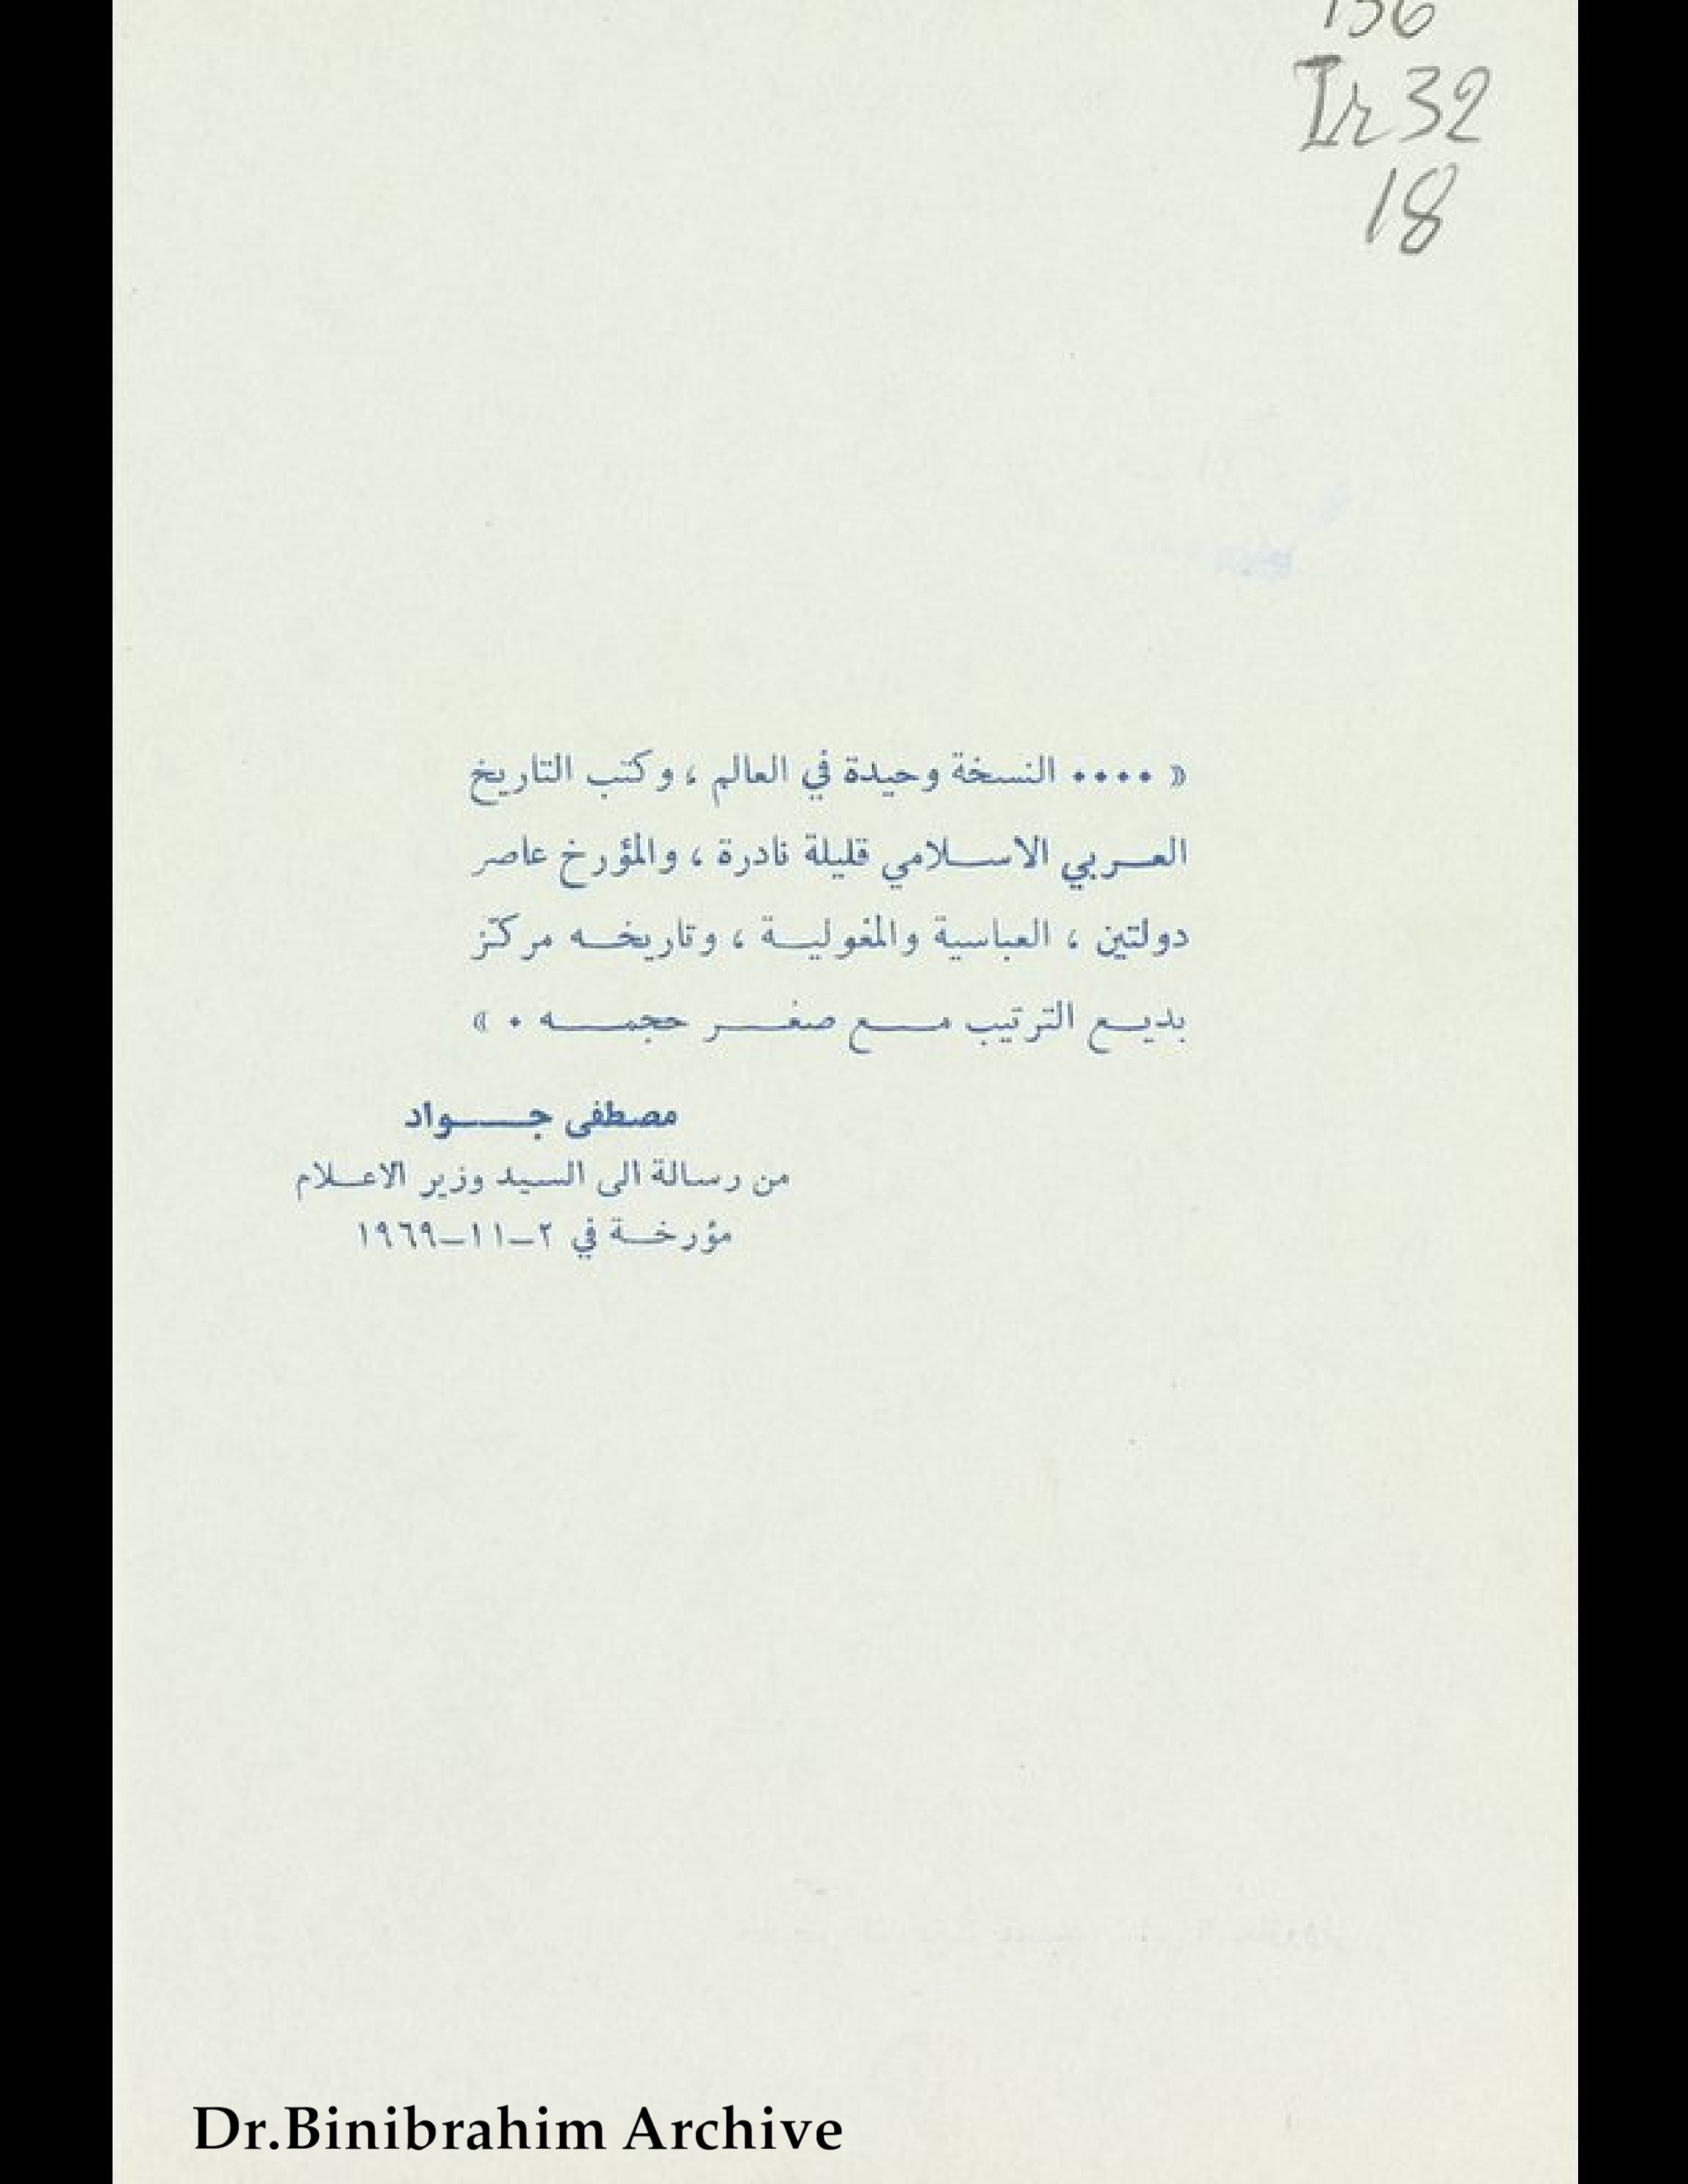 Ir 32
18
« •••• النسخة وحيدة في العالم ، وكتب التاريخ
العـربي الاسـلامي قليلة نادرة ، والمؤرخ عاصر
دولتين ، العباسية والمغوليـة ، وتاريخـه مركّز
بديـع الترتيب مـع صغـر حجمـه • »
مصطفى جـواد
من رسالة الى السيد وزير الاعـلام
مؤرخـة في ٢-١١-١٩٦٩
Dr.Binibrahim Archive